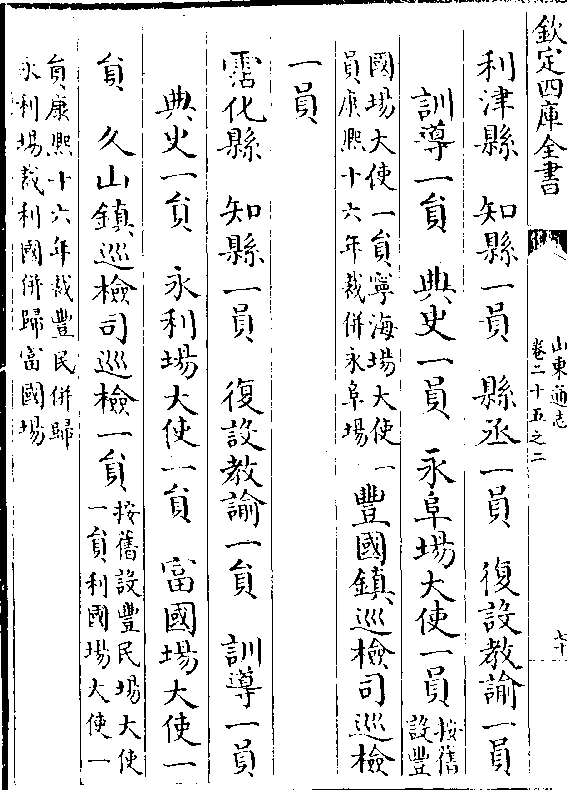 欽定四庫全書
山東通志
卷二十五之二
七十
利津縣　知縣一員　縣丞一員　復設教諭一員
訓導一員　典史一員　永阜場大使一員
按舊
設豐
國場大使一員寧海場大使一
員康熙十六年裁併永阜場
豐國鎮巡檢司巡檢
一員
霑化縣　知縣一員　復設教諭一員　訓導一員
典史一員　永利場大使一員　富國場大使一
員　久山鎮巡檢司巡檢一員
按舊設豐民場大使
一員利國場大使一
員康熙十六年裁豐民併歸
永利場裁利國併歸富國場